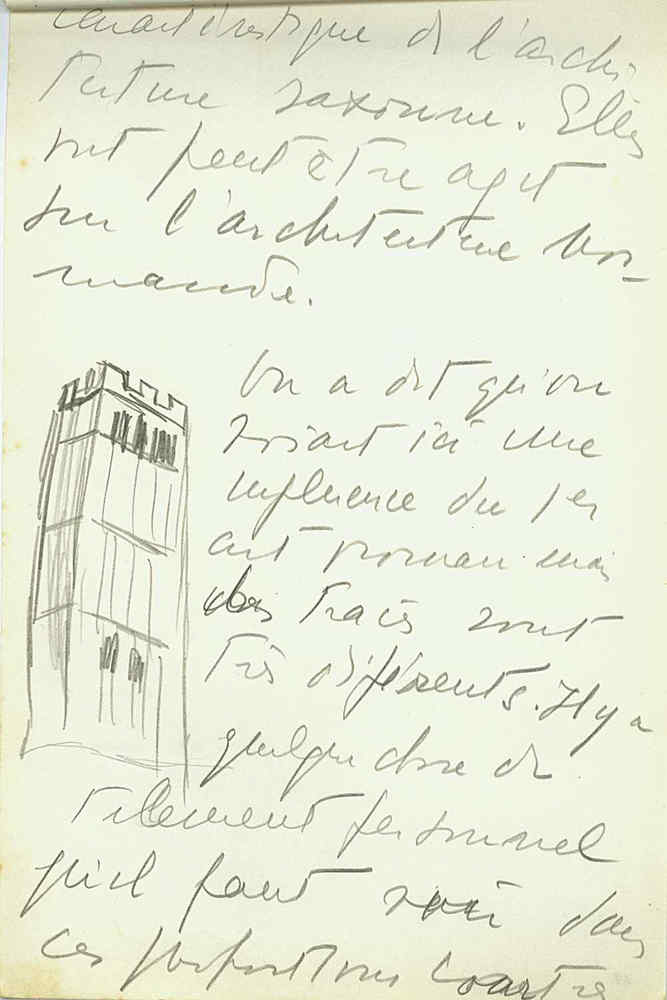 caractéristique de l'archi
tecture saxonne. Elles
ont peut être agit
sur l'architecture Nor-
mande.
On a dit qu'on
voiait ici une
influence du 1er
art roman mais
les tracés sont
très différents. Il y a
quelque chose de
tellement personnel
qu'il faut voir dans
ces proportions